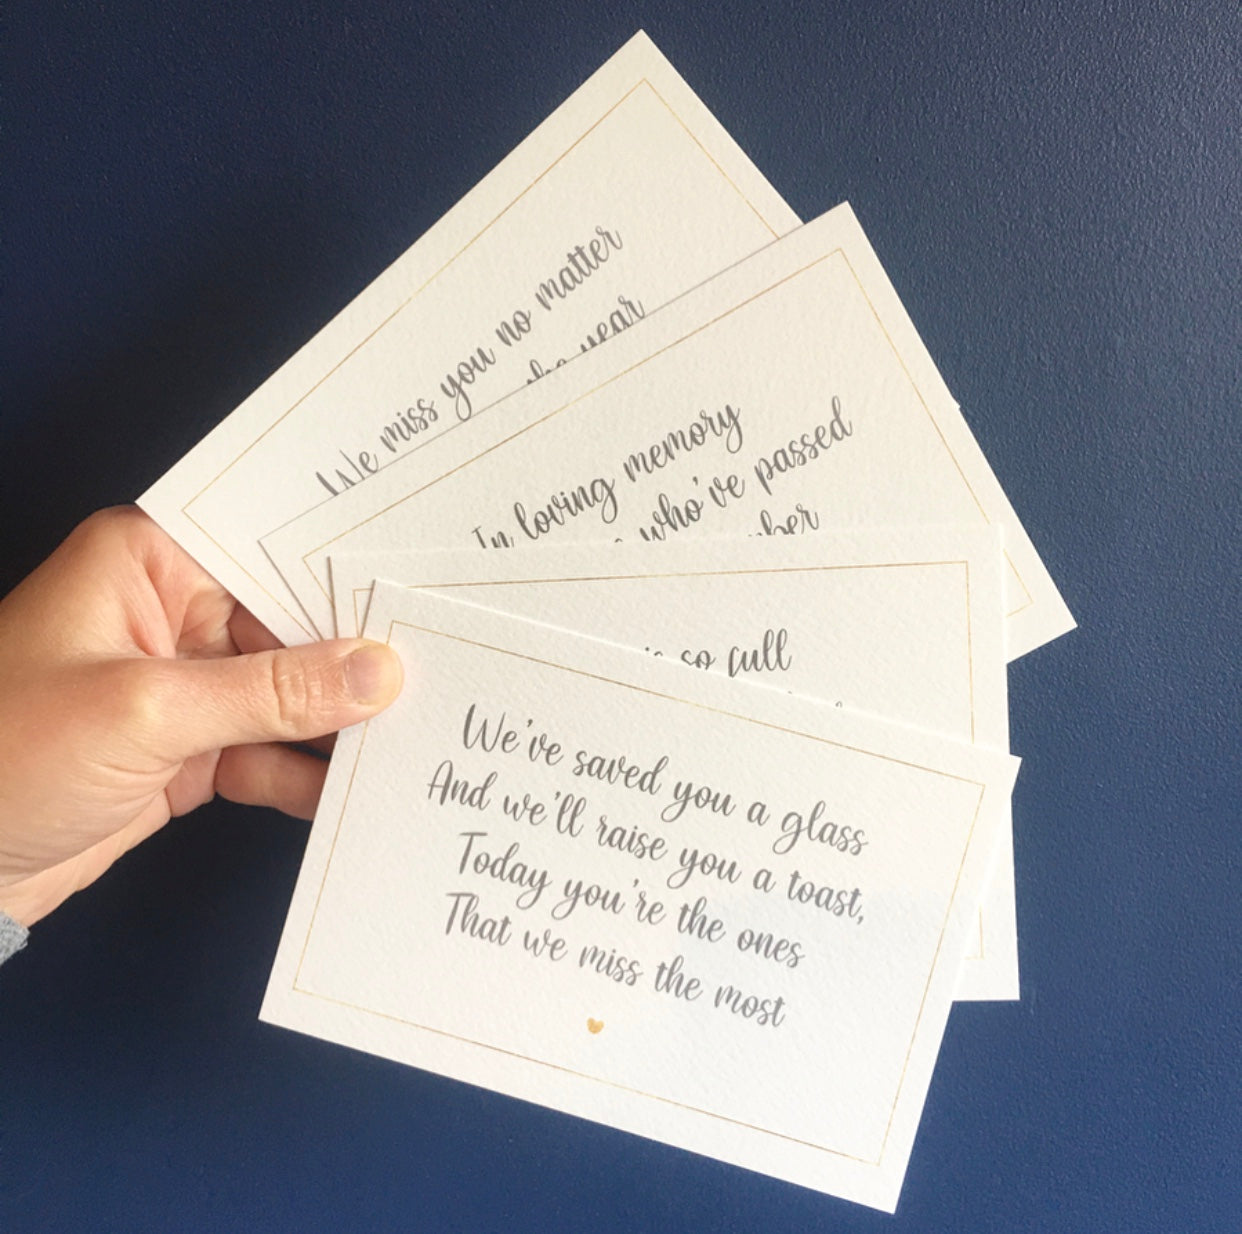 We miss you no matter
the year
In loving memory
who've passed
so full
We've saved you a glass
And we'll raise you a toast,
Today you're the ones
That we miss the most